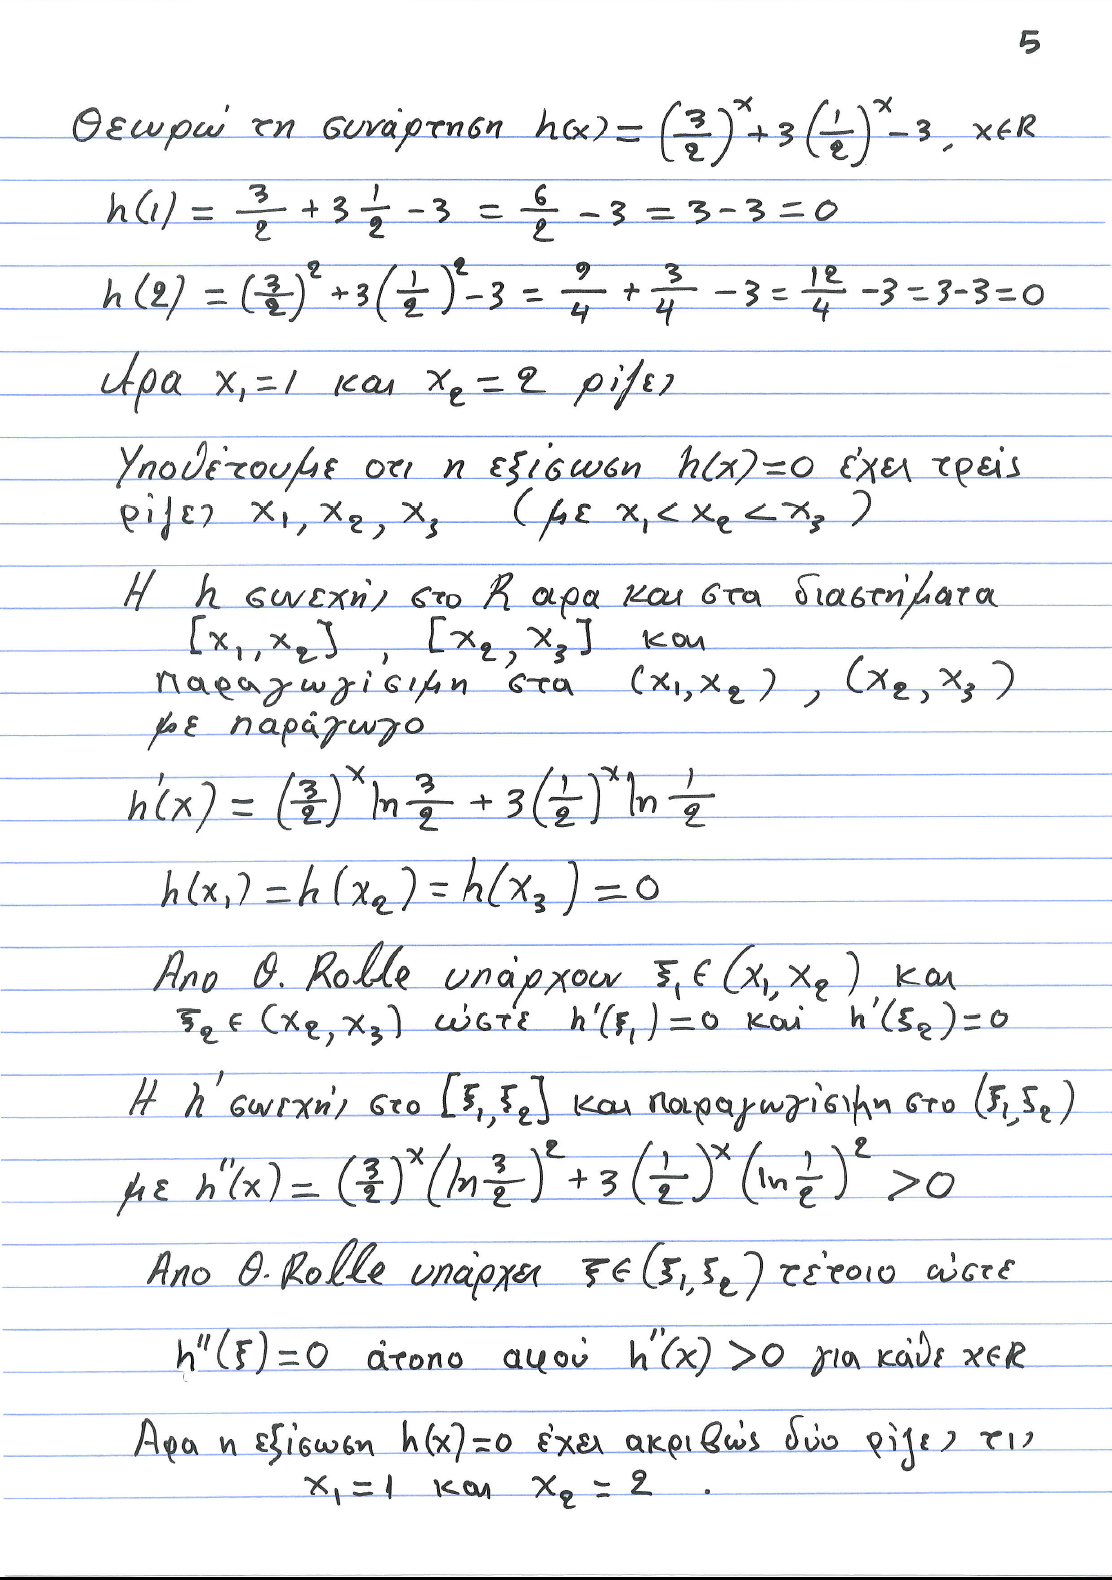 5
Θεωρώ τη συνάρτηση h(x) = (3/2)^x + 3(1/2)^x - 3, x∈R
h(1) = 3/2 + 3 1/2 - 3 = 6/2 - 3 = 3-3 = 0
h(2) = (3/2)^2 + 3(1/2)^2 - 3 = 9/4 + 3/4 - 3 = 12/4 - 3 = 3-3 = 0
Άρα x₁=1 και x₂=2 ρίζες
Υποθέτουμε οτι η εξίσωση h(x)=0 έχει τρείς
ρίζες x₁, x₂, x₃ (με x₁<x₂<x₃)
Η h συνεχής στο R αρα και στα διαστήματα
[x₁,x₂] , [x₂,x₃] και
παραγωγίσιμη στα (x₁,x₂) , (x₂,x₃)
με παράγωγο
h'(x) = (3/2)^x ln 3/2 + 3(1/2)^x ln 1/2
h(x₁) = h(x₂) = h(x₃) = 0
Απο Θ. Rolle υπάρχουν ξ₁∈(x₁,x₂) και
ξ₂∈(x₂,x₃) ώστε h'(ξ₁)=0 και h'(ξ₂)=0
Η h' συνεχής στο [ξ₁,ξ₂] και παραγωγίσιμη στο (ξ₁,ξ₂)
με h''(x) = (3/2)^x (ln 3/2)^2 + 3(1/2)^x (ln 1/2)^2 > 0
Απο Θ. Rolle υπάρχει ξ∈(ξ₁,ξ₂) τέτοιο ώστε
h''(ξ)=0 άτοπο αφού h''(x)>0 για κάθε x∈R
Αρα η εξίσωση h(x)=0 έχει ακριβώς δύο ρίζες τις
x₁=1 και x₂=2 .